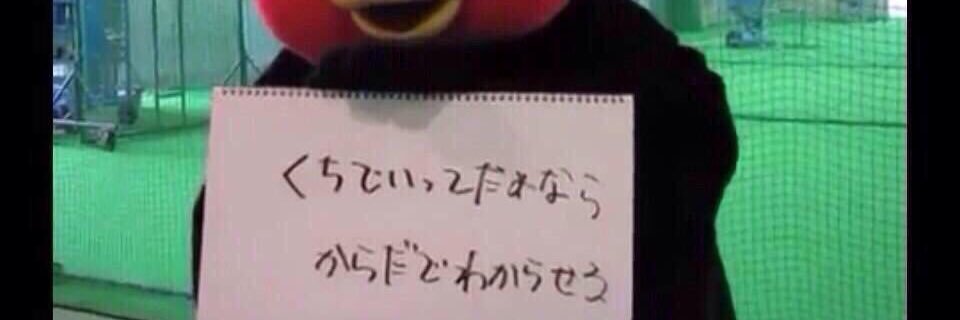 くちでいってだめなら
からだでわからせろ